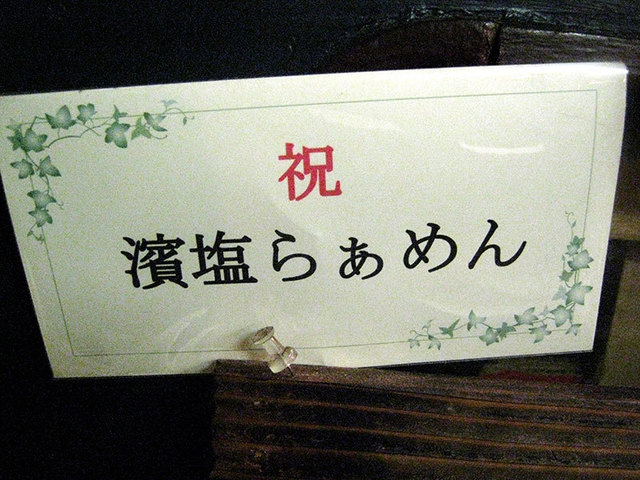 祝
濱塩らぁめん